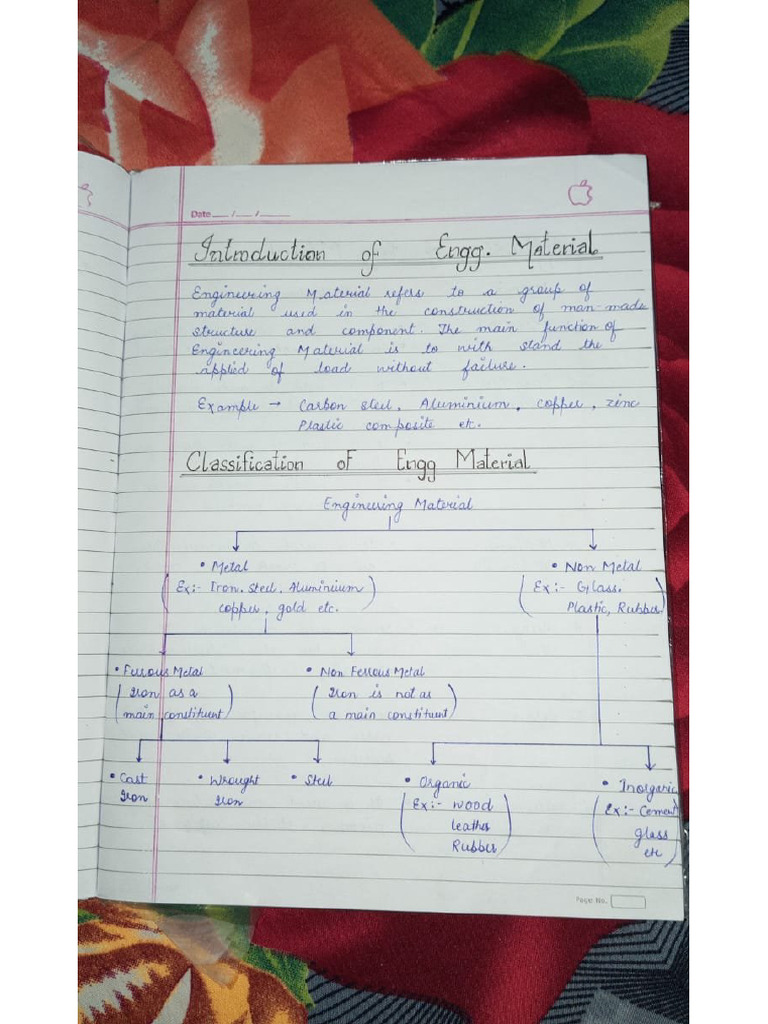 Date ___ / ___ / ______
Introduction of Engg. Material
Engineering Material refers to a group of
material used in the construction of man-made
structure and component. The main function of
Engineering Material is to with stand the
applied of load without failure.
Example → Carbon steel, Aluminium, copper, zinc
Plastic composite etc.
Classification of Engg Material
Engineering Material
• Metal
(Ex:- Iron. Steel. Aluminium
copper, gold etc.)
• Non Metal
(Ex:- Glass.
Plastic, Rubber)
• Ferrous Metal
(Iron as a
main constituent)
• Non Ferrous Metal
(Iron is not as
a main constituent)
• Cast
Iron
• Wrought
Iron
• Steel
• Organic
(Ex:- wood
leather
Rubber)
• Inorganic
(Ex:- Cement
glass
etc)
Page No.